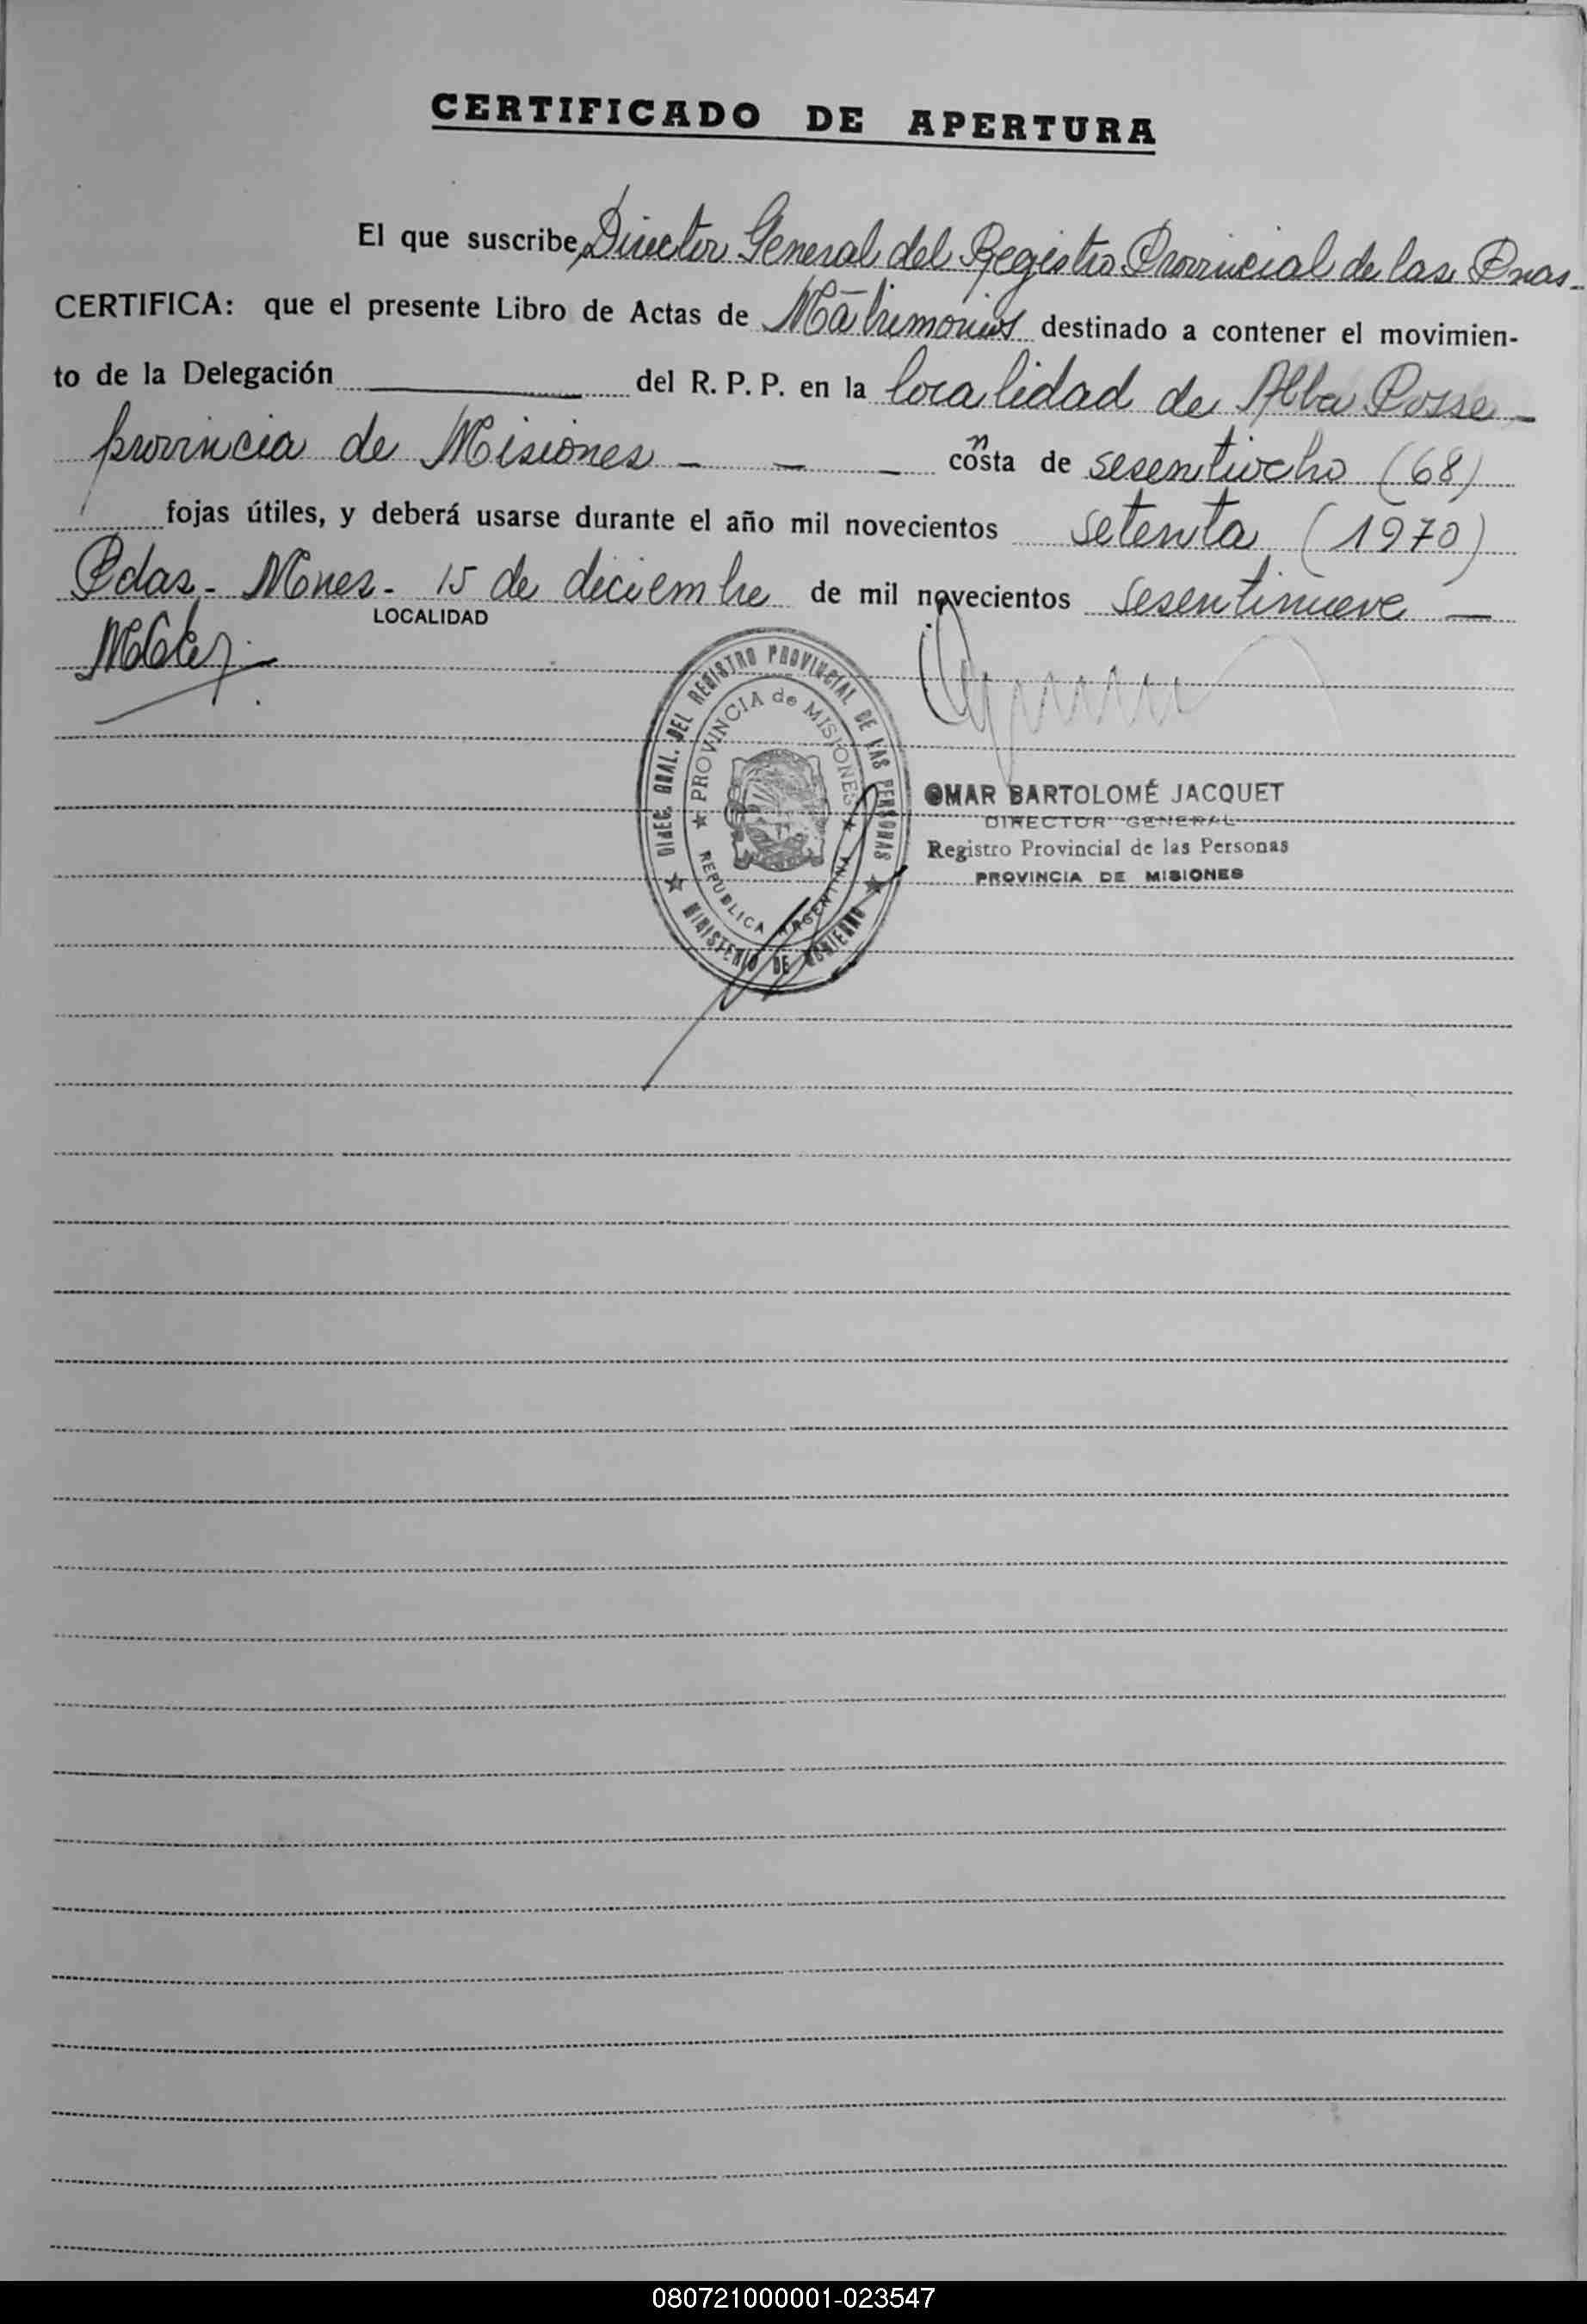 CERTIFICADO DE APERTURA
El que suscribe, Director General del Registro Provincial de las Pnas-
CERTIFICA: que el presente Libro de Actas de Matrimonios destinado a contener el movimien-
to de la Delegación del R. P. P. en la localidad de Alba Posse -
provincia de Misiones - - - consta de sesentiocho (68)
fojas útiles, y deberá usarse durante el año mil novecientos setenta (1970)
Pdas.- Mnes.- 15 de diciembre de mil novecientos sesentinueve -
LOCALIDAD
DIREC. GRAL. DEL REGISTRO PROVINCIAL DE LAS PERSONAS
PROVINCIA de MISIONES
REPUBLICA ARGENTINA
MINISTERIO DE GOBIERNO
OMAR BARTOLOMÉ JACQUET
DIRECTOR GENERAL
Registro Provincial de las Personas
PROVINCIA DE MISIONES
080721000001-023547